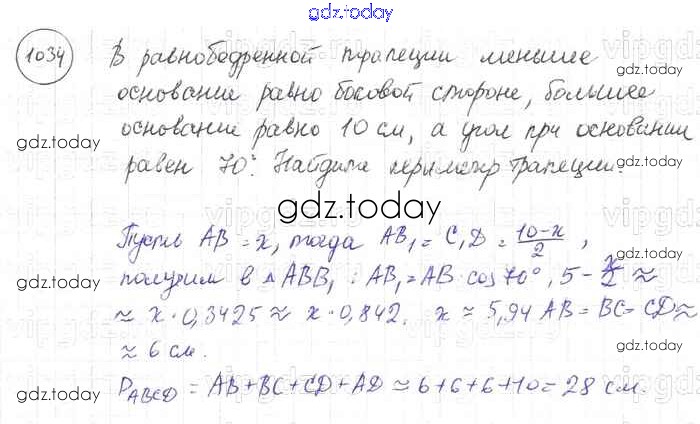 gdz.today
1034 В равнобедренной трапеции меньшее
основание равно боковой стороне, большее
основание равно 10 см, а угол при основании
равен 70°. Найдите периметр трапеции.
gdz.today
Пусть AB = x, тогда AB₁ = C₁D = (10-x)/2 ,
получим в △ABB₁ : AB₁ = AB cos 70°, 5 - x/2 ≈
≈ x · 0,3425 ≈ x · 0,842. x ≈ 5,94 AB = BC = CD ≈
≈ 6 см.
P_ABCD = AB + BC + CD + AD ≈ 6+6+6+10 = 28 см.